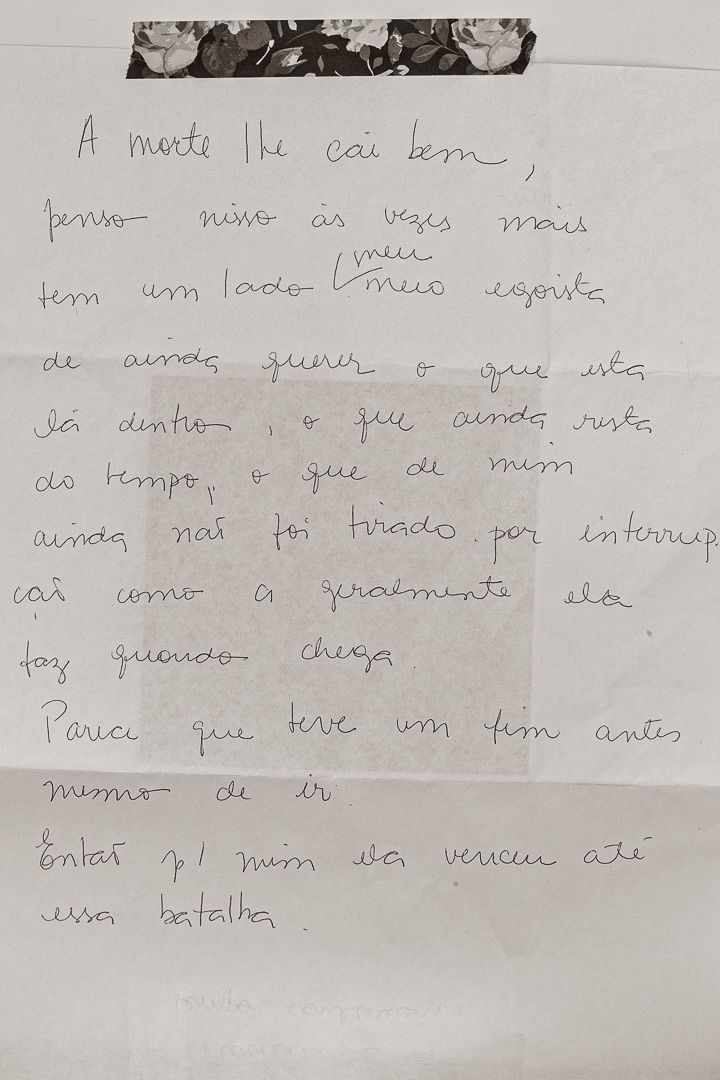 A morte lhe cai bem,
penso nisso às vezes mais
tem um lado meu meio egoista
de ainda querer o que esta
lá dentro, o que ainda resta
do tempo, o que de mim
ainda não foi tirado por interrup.
ção como a geralmente ela
faz quando chega.
Parece que teve um fim antes
mesmo de ir.
Então p/ mim ela venceu até
essa batalha.